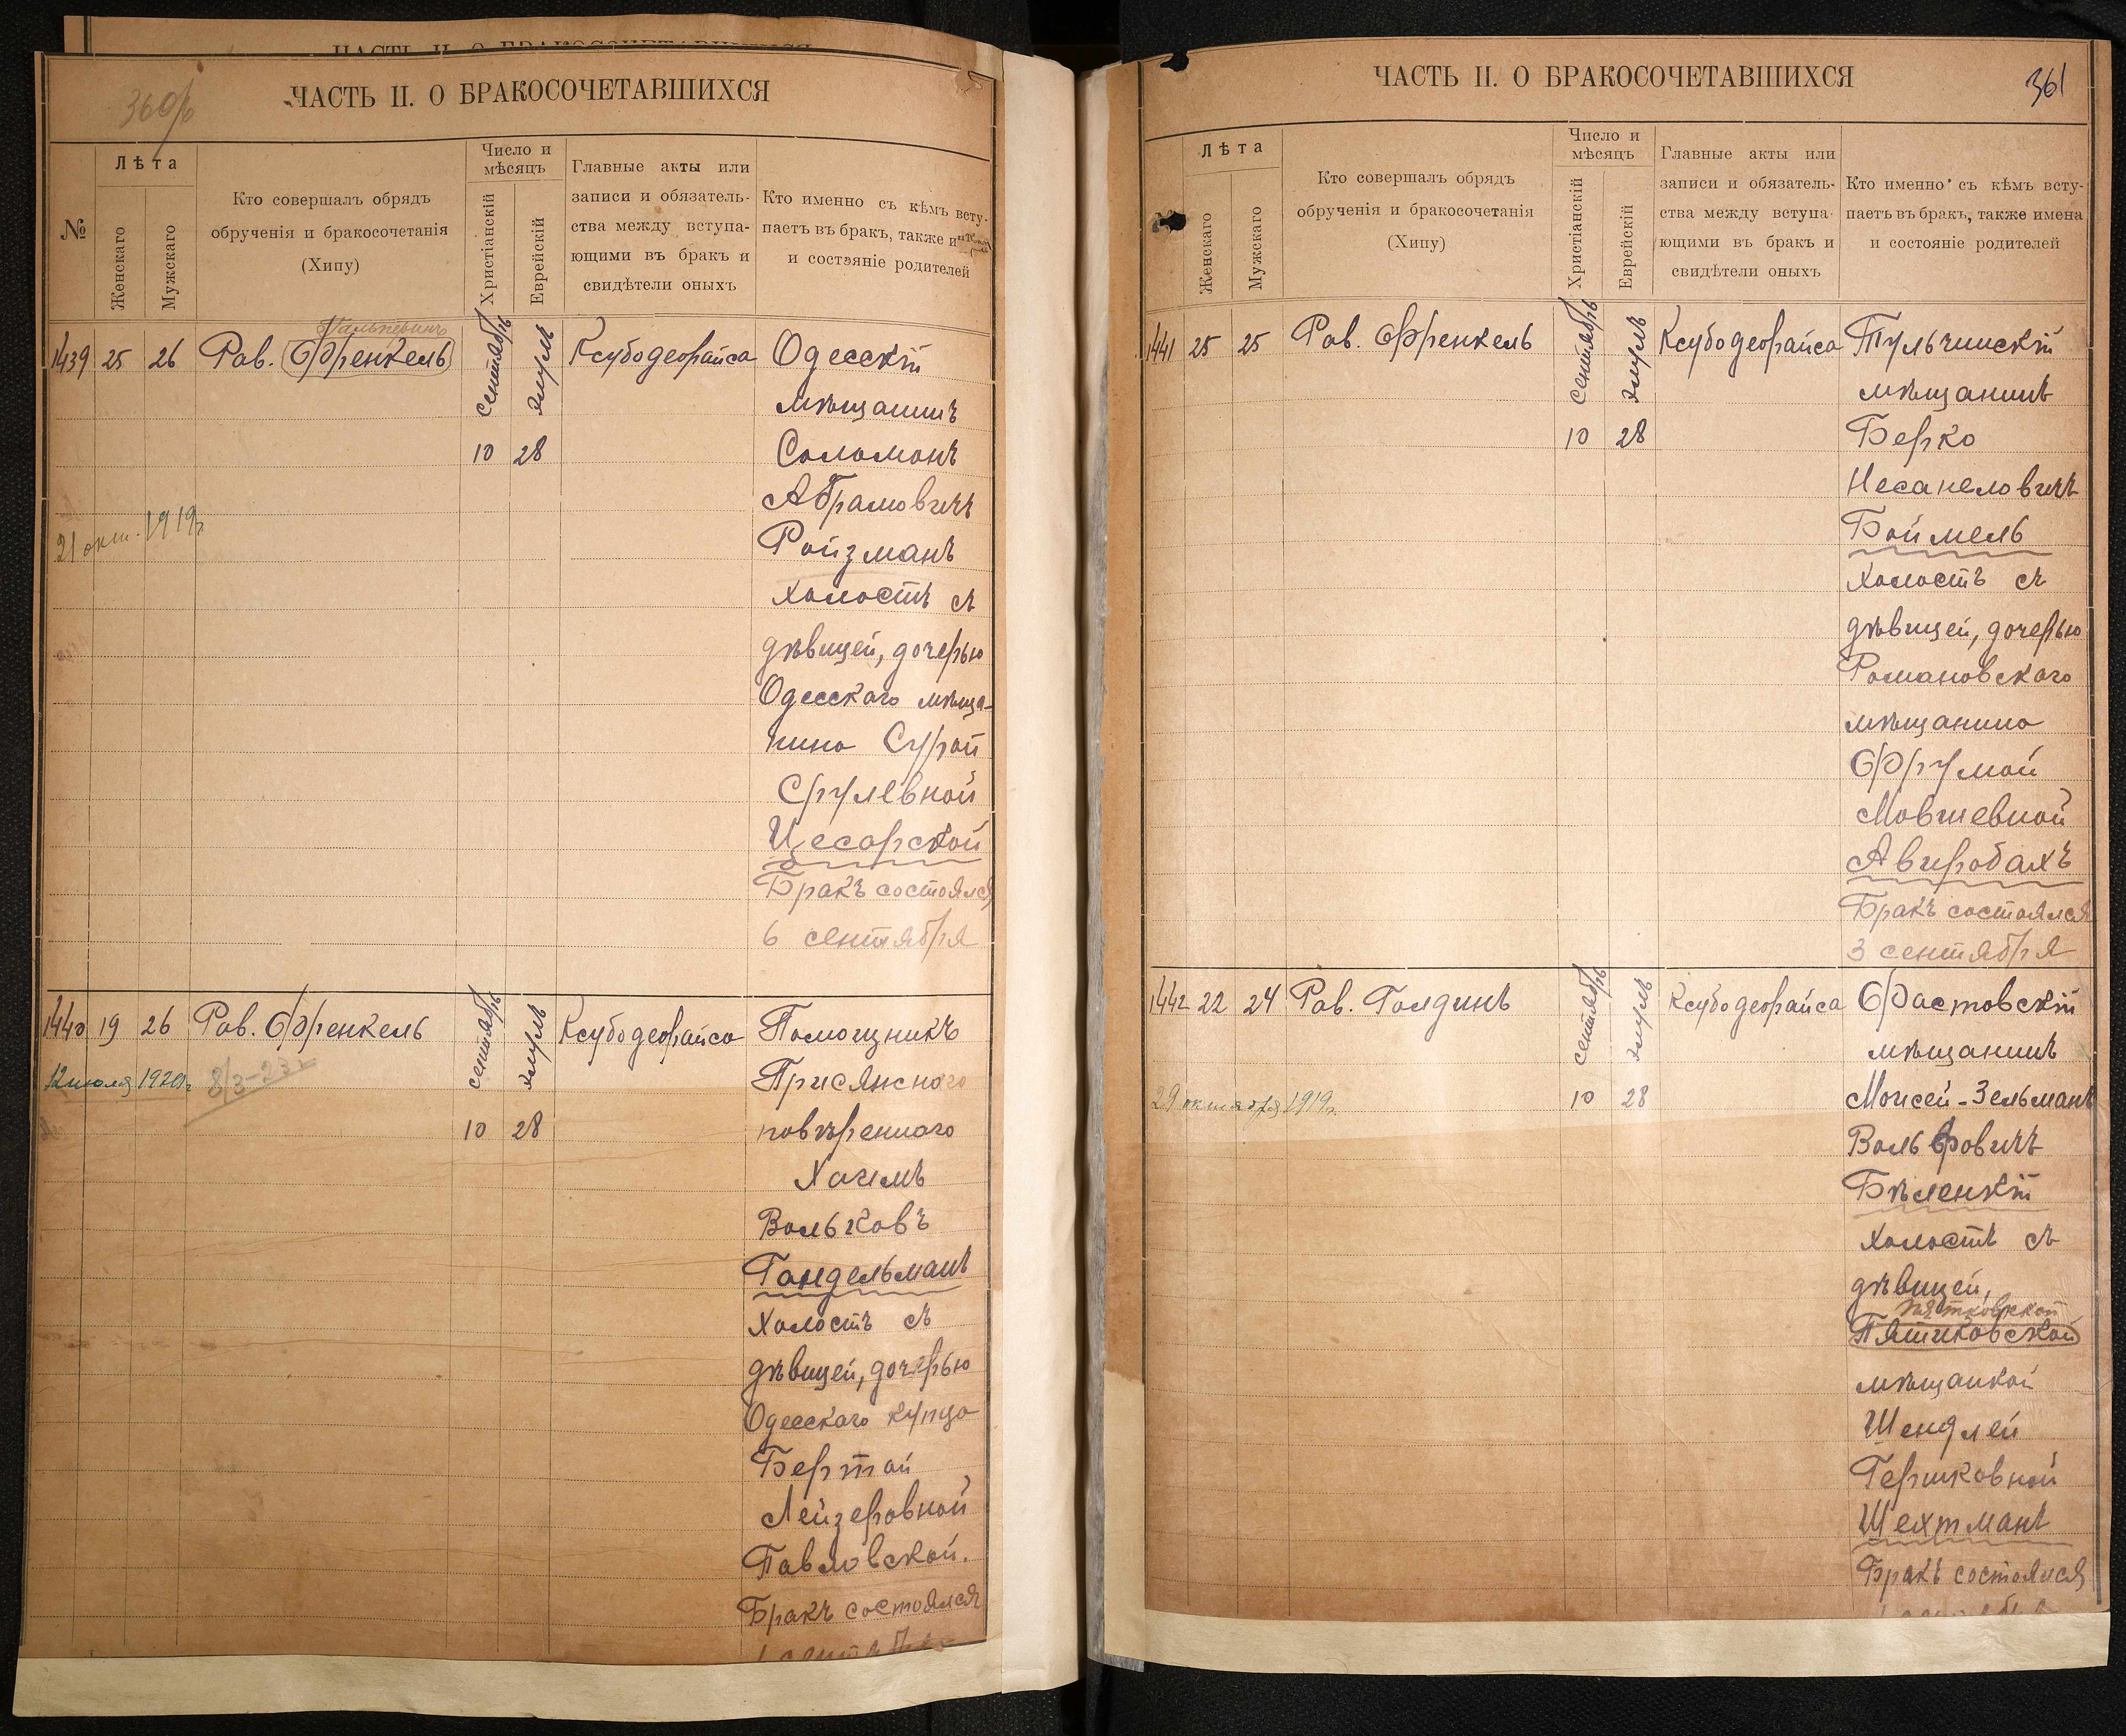 360б
ЧАСТЬ II. О БРАКОСОЧЕТАВШИХСЯ
№
Лѣта
Женскаго
Мужскаго
Кто совершалъ обрядъ
обрученія и бракосочетанія
(Хипу)
Число и
мѣсяцъ
Христіанскій
Еврейскій
Главные акты или
записи и обязатель-
ства между вступа-
ющими въ бракъ и
свидѣтели оныхъ
Кто именно съ кѣмъ всту-
паетъ въ бракъ, также
и состояніе родителей
1439 25 26 Рав. Френкель
Гальперинъ
сентябрь
элулъ
10 28
Ксубодеорайса
Одесскій
мѣщанинъ
Соломонъ
Абрамовичъ
Ройзманъ
холостъ съ
дѣвицей, дочерью
Одесскаго мѣща-
нина Сурой
Срулевной
Цесарской
Бракъ состоялся
6 сентября
21 окт. 1919г.
1440 19 26 Рав. Френкель
12 июля 1920г. 8/3-23г
сентябрь
элулъ
10 28
Ксубодеорайса
Помощникъ
Присяжного
повѣреннаго
Хаимъ
Вольковъ
Гандельманъ
Холостъ съ
дѣвицей, дочерью
Одесскаго купца
Бертой
Лейзеровной
Павловской.
Бракъ состоялся
ЧАСТЬ II. О БРАКОСОЧЕТАВШИХСЯ
361
Лѣта
Женскаго
Мужскаго
Кто совершалъ обрядъ
обрученія и бракосочетанія
(Хипу)
Число и
мѣсяцъ
Христіанскій
Еврейскій
Главные акты или
записи и обязатель-
ства между вступа-
ющими въ бракъ и
свидѣтели оныхъ
Кто именно съ кѣмъ всту-
паетъ въ бракъ, также имена
и состояніе родителей
1441 25 25 Рав. Френкель
сентябрь
элулъ
10 28
Ксубодеорайса
Тульчинскій
мѣщанинъ
Берко
Несанеловичъ
Боймель
холостъ съ
дѣвицей, дочерью
Романовскаго
мѣщанина
Фрумой
Мовшевной
Авербахъ
Бракъ состоялся
3 сентября
1442 22 24 Рав. Голдинъ
29 октября 1919г.
сентябрь
элулъ
10 28
Ксубодеорайса
Фастовскій
мѣщанинъ
Моисей-Зельманъ
Вольфовичъ
Бѣленкій
холостъ съ
дѣвицей,
Пятковской
Пятиковской
мѣщанкой
Шендлей
Гершковной
Шехтманъ
Бракъ состоялся